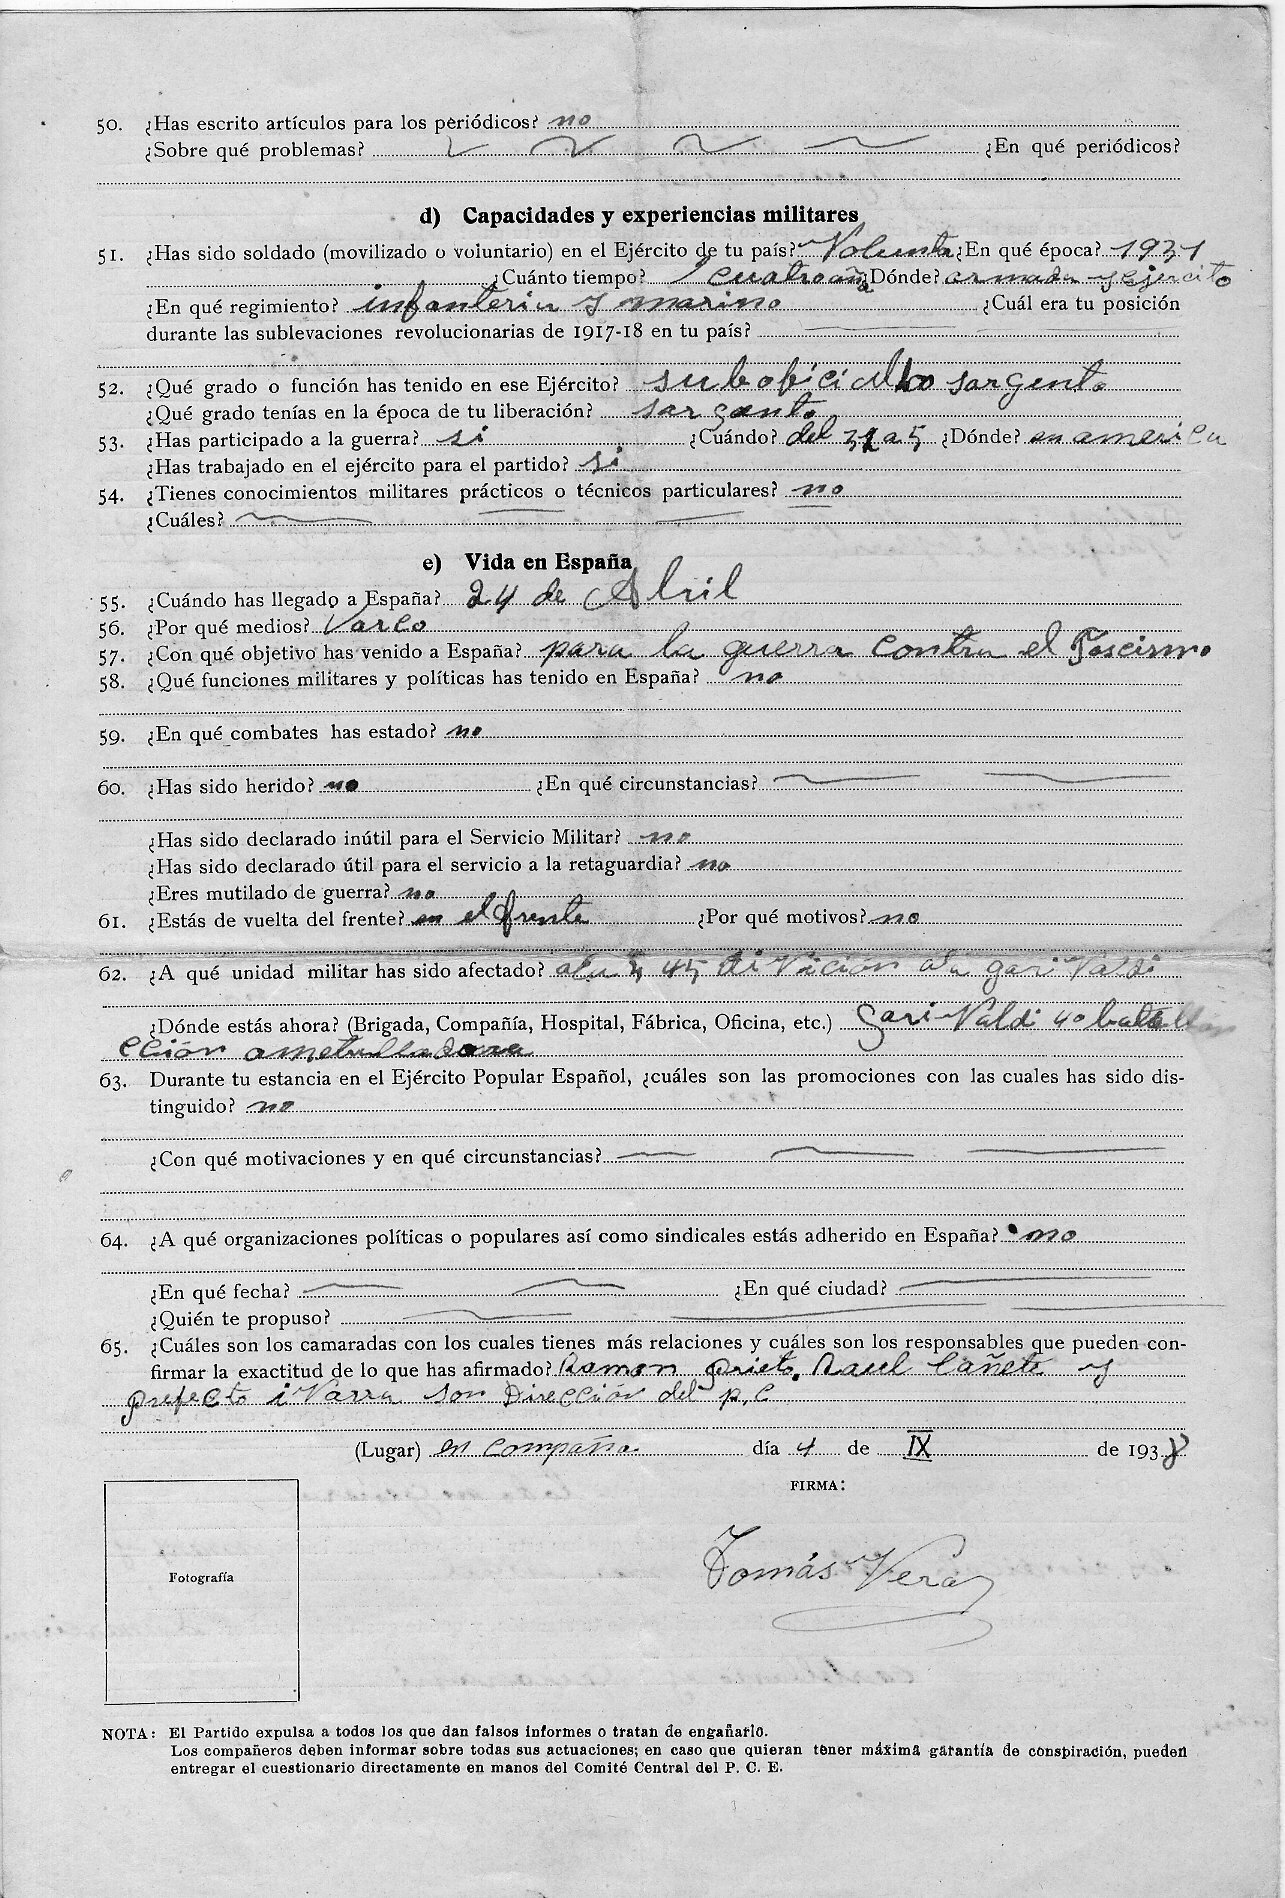 50. ¿Has escrito artículos para los periódicos? no
¿Sobre qué problemas? ¿En qué periódicos?
d) Capacidades y experiencias militares
51. ¿Has sido soldado (movilizado o voluntario) en el Ejército de tu país? Volunta ¿En qué época? 1931
¿Cuánto tiempo? cuatro año ¿Dónde? armada y ejercito
¿En qué regimiento? infanteria y marino ¿Cuál era tu posición
durante las sublevaciones revolucionarias de 1917-18 en tu país?
52. ¿Qué grado o función has tenido en ese Ejército? sargento
¿Qué grado tenías en la época de tu liberación? sargento
53. ¿Has participado a la guerra? si ¿Cuándo? del a 5 ¿Dónde? en america
¿Has trabajado en el ejército para el partido? si
54. ¿Tienes conocimientos militares prácticos o técnicos particulares? no
¿Cuáles?
e) Vida en España
55. ¿Cuándo has llegado a España? 24 de Abril
56. ¿Por qué medios? Varco
57. ¿Con qué objetivo has venido a España? para la guerra contra el Fascismo
58. ¿Qué funciones militares y políticas has tenido en España? no
59. ¿En qué combates has estado? no
60. ¿Has sido herido? no ¿En qué circunstancias?
¿Has sido declarado inútil para el Servicio Militar? no
¿Has sido declarado útil para el servicio a la retaguardia? no
¿Eres mutilado de guerra? no
61. ¿Estás de vuelta del frente? en el frente ¿Por qué motivos? no
62. ¿A qué unidad militar has sido afectado? 45 diVición ala gariValdi
¿Dónde estás ahora? (Brigada, Compañía, Hospital, Fábrica, Oficina, etc.) gariValdi 4o batallon
cción ametralladora
63. Durante tu estancia en el Ejército Popular Español, ¿cuáles son las promociones con las cuales has sido dis-
tinguido? no
¿Con qué motivaciones y en qué circunstancias?
64. ¿A qué organizaciones políticas o populares así como sindicales estás adherido en España? no
¿En qué fecha? ¿En qué ciudad?
¿Quién te propuso?
65. ¿Cuáles son los camaradas con los cuales tienes más relaciones y cuáles son los responsables que pueden con-
firmar la exactitud de lo que has afirmado? Ramon prieto. Raul Cañete y
prefecto iVarra son Dirección del p.c
(Lugar) en compañia día 4 de IX de 1938
FIRMA:
Tomás Vera
Fotografía
NOTA: El Partido expulsa a todos los que dan falsos informes o tratan de engañarlo.
Los compañeros deben informar sobre todas sus actuaciones; en caso que quieran tener máxima garantía de conspiración, pueden
entregar el cuestionario directamente en manos del Comité Central del P. C. E.